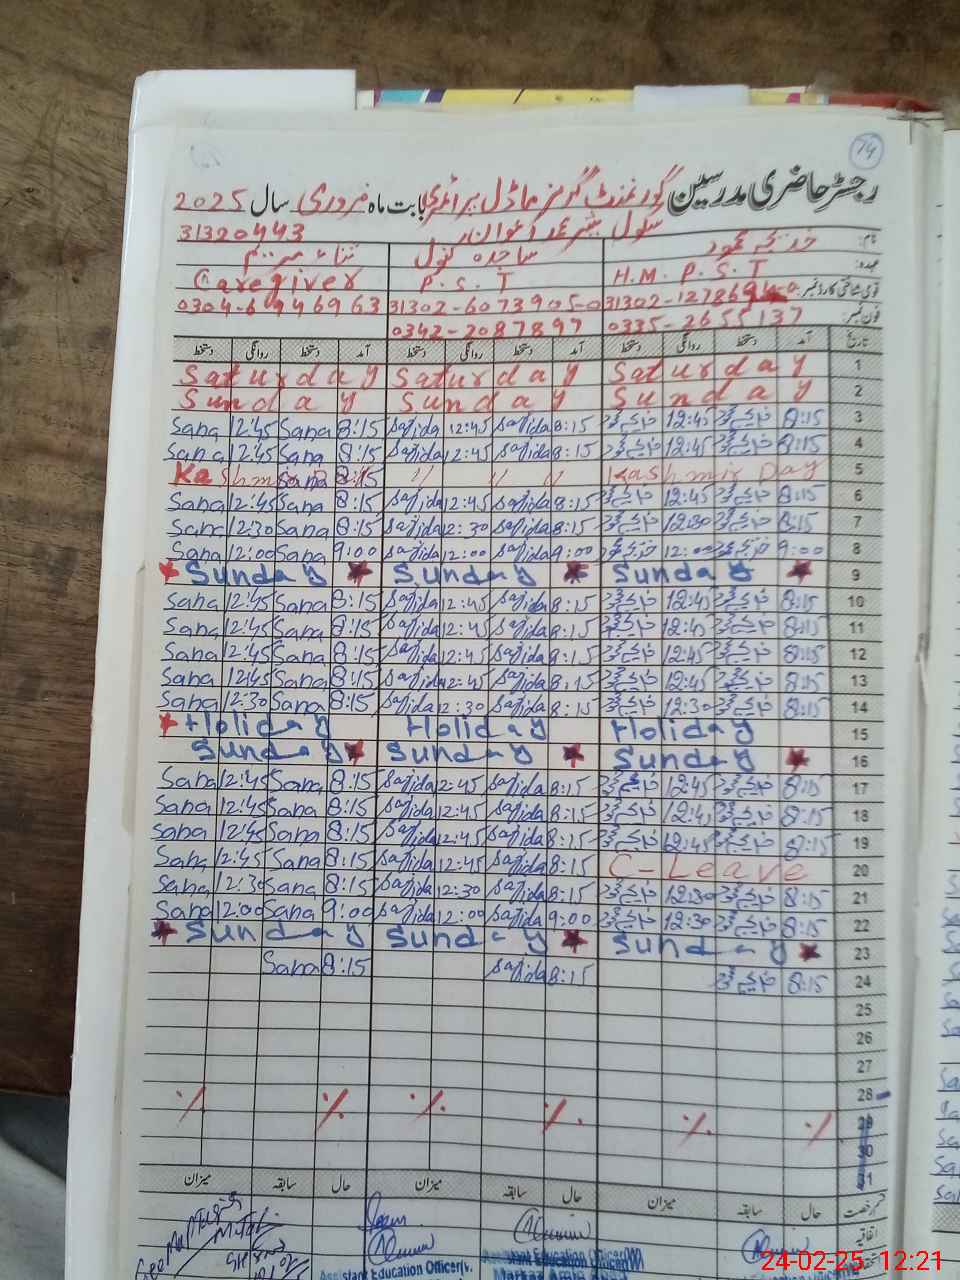 74
رجسٹر حاضری مدرسین گورنمنٹ گرلز ماڈل پرائمری بابت ماہ فروری سال 2025
31320443
نام: خدیجہ محمود ساجدہ بتول ثناء مریم
عہدہ: H.M. P.S.T P.S.T Caregiver
قومی شناختی کارڈ نمبر: 31302-6073905-0 0304-6946963
فون نمبر: 0335-2655137 0342-2087897
تاریخ آمد دستخط روانگی دستخط آمد دستخط روانگی دستخط آمد دستخط روانگی دستخط
Saturday Saturday Saturday 1
Sunday Sunday Sunday 2
Sana 12:45 Sana 8:15 Sajida 12:45 Sajida 8:15 خدیجہ محمود 12:45 خدیجہ محمود 8:15 3
Sana 12:45 Sana 8:15 Sajida 12:45 Sajida 8:15 خدیجہ محمود 12:45 خدیجہ محمود 8:15 4
8:15 // // // Kashmir Day 5
Sana 12:45 Sana 8:15 Sajida 12:45 Sajida 8:15 خدیجہ محمود 12:45 خدیجہ محمود 8:15 6
Sana 12:30 Sana 8:15 Sajida 12:30 Sajida 8:15 خدیجہ محمود 12:30 خدیجہ محمود 8:15 7
Sana 12:00 Sana 9:00 Sajida 12:00 Sajida 9:00 خدیجہ محمود 12:00 خدیجہ محمود 9:00 8
Sunday Sunday Sunday 9
Sana 12:45 Sana 8:15 Sajida 12:45 Sajida 8:15 خدیجہ محمود 12:45 خدیجہ محمود 8:15 10
Sana 12:45 Sana 8:15 Sajida 12:45 Sajida 8:15 خدیجہ محمود 12:45 خدیجہ محمود 8:15 11
Sana 12:45 Sana 8:15 Sajida 12:45 Sajida 8:15 خدیجہ محمود 12:45 خدیجہ محمود 8:15 12
Sana 12:45 Sana 8:15 Sajida 12:45 Sajida 8:15 خدیجہ محمود 12:45 خدیجہ محمود 8:15 13
Sana 12:30 Sana 8:15 Sajida 12:30 Sajida 8:15 خدیجہ محمود 12:30 خدیجہ محمود 8:15 14
Holiday Holiday Holiday 15
Sunday Sunday Sunday 16
Sana 12:45 Sana 8:15 Sajida 12:45 Sajida 8:15 خدیجہ محمود 12:45 خدیجہ محمود 8:15 17
Sana 12:45 Sana 8:15 Sajida 12:45 Sajida 8:15 خدیجہ محمود 12:45 خدیجہ محمود 8:15 18
Sana 12:45 Sana 8:15 Sajida 12:45 Sajida 8:15 خدیجہ محمود 12:45 خدیجہ محمود 8:15 19
Sana 12:45 Sana 8:15 Sajida 12:45 Sajida 8:15 C-Leave 20
Sana 12:30 Sana 8:15 Sajida 12:30 Sajida 8:15 خدیجہ محمود 12:30 خدیجہ محمود 8:15 21
Sana 12:00 Sana 9:00 Sajida 12:00 Sajida 9:00 خدیجہ محمود 12:30 خدیجہ محمود 8:15 22
Sunday Sunday Sunday 23
Sana 8:15 Sajida 8:15 خدیجہ محمود 8:15 24
25
26
27
28
29
30
31
میزان سابقہ حال میزان سابقہ حال میزان سابقہ حال قسم رخصت
اتفاقیہ
Assistant Education Officer Assistant Education Officer
24-02-25 12:21